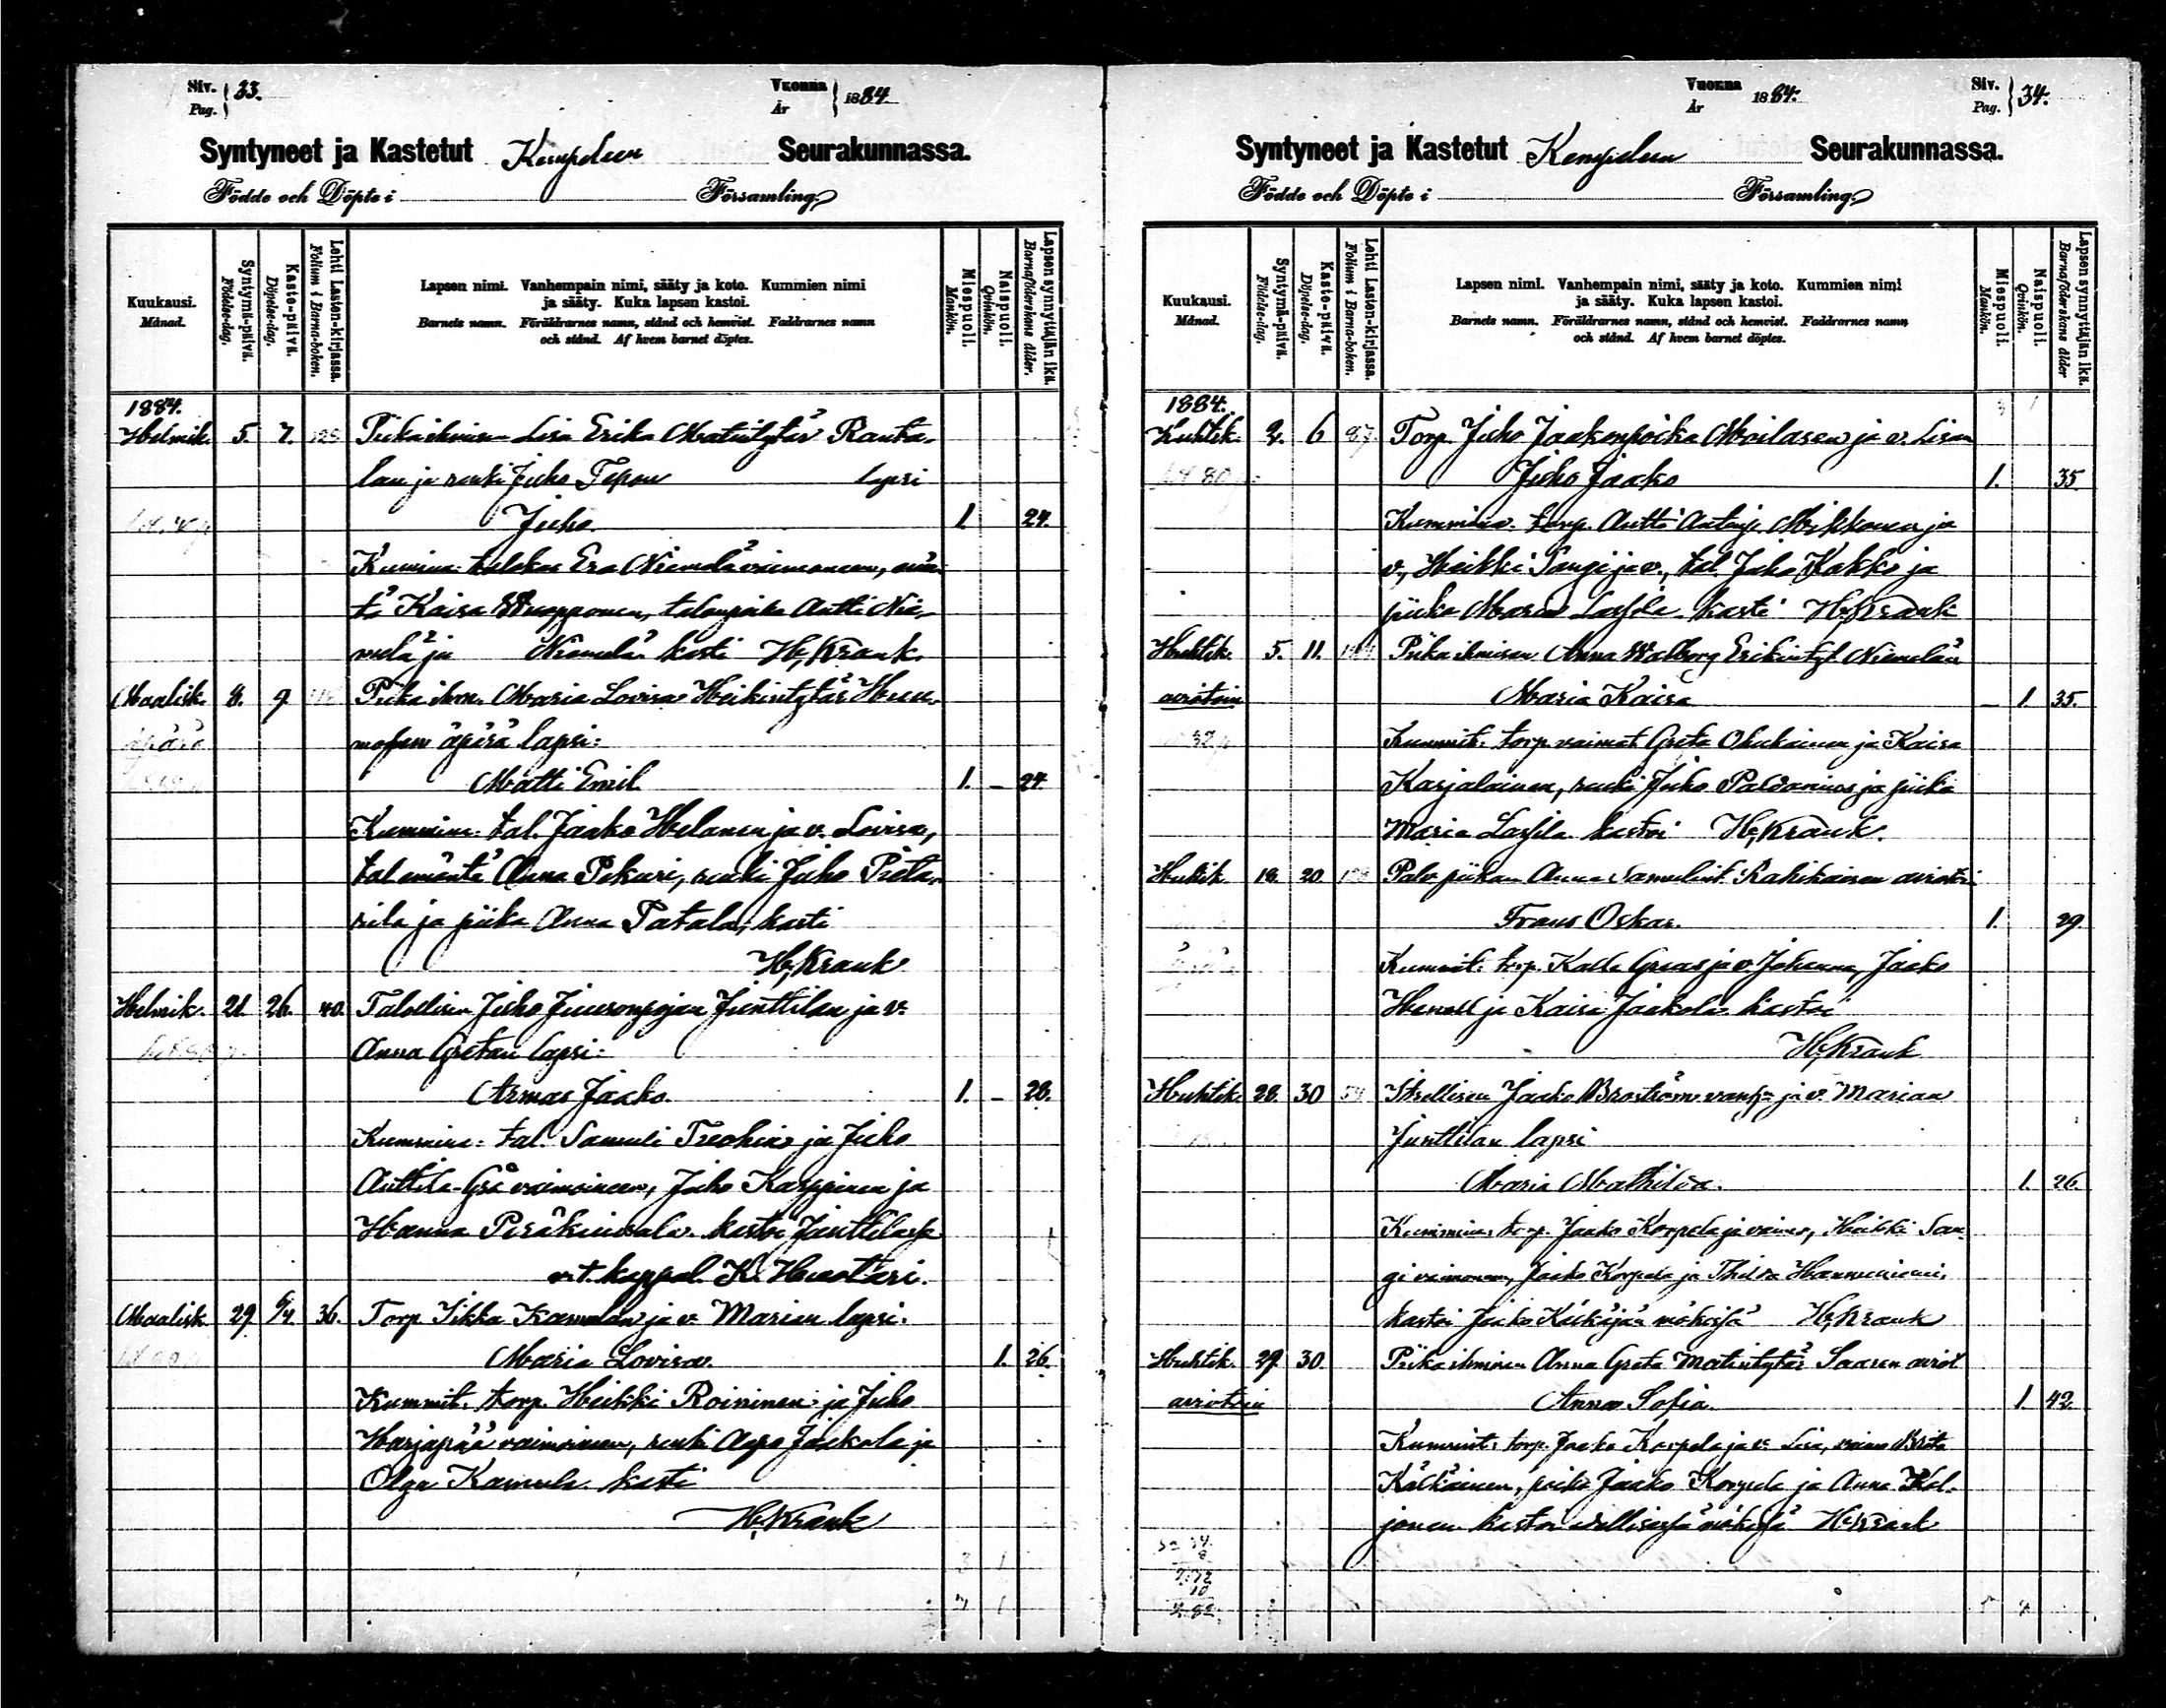 Siv. Pag. } 33.
Vuonna År } 1884.
Syntyneet ja Kastetut Kempeleen Seurakunnassa.
Födde och Döpte i Församling.
Kuukausi. Månad.
Syntymä-päivä. Födelse-dag.
Kaste-päivä. Döpelse-dag.
Lehti Lasten-kirjassa. Folium i Barna-boken.
Lapsen nimi. Vanhempain nimi, sääty ja koto. Kummien nimi
ja sääty. Kuka lapsen kastoi.
Barnets namn. Föräldrarnes namn, stånd och hemvist. Faddrarnes namn
och stånd. Af hvem barnet döptes.
Miespuoli. Mankön.
Naispuoli. Qvinkön.
Lapsen synnyttäjän ikä. Barnaföderskans ålder.
1884.
Helmik. 5. 7. Piika ihmisen Lisa Erika Matintytär Ranta-
lan ja renki Juho Tepon lapsi
Juho 1 24.
Kummina: talokas Era Niemelä vaimoneen, emän-
tä Kaisa Wuopponen, talonpoika Antti Nie-
melä ja Niemelä kasti H. Krank.
Maalisk. 8. 9. Piika ihm. Maria Lovisa Heikintytär
äpärä lapsi:
Matti Emil 1. - 24.
Kummina: tal. Jaako Helanen ja v. Lovisa,
tal emäntä Anna Pekuri, renki Juho Pieta-
rila ja piika Anna Patala, kasti
H. Krank
Helmik. 21. 26. 40. Talollisen Juho Juusonpojan Junttilan ja v.
Anna Gretan lapsi:
Armas Jaako. 1. - 28.
Kummina: tal. Samuli ja Juho
Anttila vaimoineen, Juho Karppinen ja
Hanna Peräkintala. kastoi Junttilassa
v.t. kappal. K. Huotari.
Maalisk. 29 6/4. 36. Torp Iikka Kamulan ja v. Marian lapsi.
Maria Lovisa 1. 26.
Kummit: torp. Heikki Roininen ja Juho
Harjapää vaimoineen, renki Aapo Jaakola ja
Olga Kamula. kasti
H. Krank
Siv. Pag. } 34.
Vuonna År 1884.
Syntyneet ja Kastetut Kempeleen Seurakunnassa.
Födde och Döpte i Församling.
Kuukausi. Månad.
Syntymä-päivä. Födelse-dag.
Kaste-päivä. Döpelse-dag.
Lehti Lasten-kirjassa. Folium i Barna-boken.
Lapsen nimi. Vanhempain nimi, sääty ja koto. Kummien nimi
ja sääty. Kuka lapsen kastoi.
Barnets namn. Föräldrarnes namn, stånd och hemvist. Faddrarnes namn
och stånd. Af hvem barnet döptes.
Miespuoli. Mankön.
Naispuoli. Qvinkön.
Lapsen synnyttäjän ikä. Barnaföderskans ålder
1884.
Huhtik. 2. 6 87 Torp. Juho Jaakonpoika Moilasen ja v. Lisan
Juho Jaako 1. 35
Kummina: torp. Antti Antinp. Mikkonen ja
v., Heikki Sangi ja v., tal. Juho Kakko ja
piika Maria Lassila. kasti H. Krank
Huhtik. 5. 11. Piika ihmisen Anna Walborg Erikintyt. Niemelän
aviotoin Maria Kaisa - 1 35.
Kummit: torp. vaimot Greta Ohukainen ja Kaisa
Karjalainen, renki Juho Paldanius ja piika
Maria Lassila. kastoi H. Krank.
Huhtik. 18. 20 Palv piikan Anna Samulint. Rahikaisen aviotoi
Frans Oskar. 1. 29.
Kummit: torp. Kalle Graas ja v. Johanna, Jaako
ja Kaisa Jaakola kastoi
H. Krank
Huhtik. 28. 30 54 Itsellisen Jaako Broström ja v. Marian
Junttilan lapsi
Maria Mathilda. 1. 26.
Kummina: torp. Jaako Korpela ja vaimo, Heikki San-
gi vaimoneen, Jaako Korpela ja Hannuniemi.
kastoi Juho mökissä H. Krank
Huhtik. 29. 30. Piika ihminen Anna Greta Matintytär Saaren aviot
aviotoin Anna Sofia. 1 42.
Kummit: torp. Jaako Korpela ja v. Lisa, vaimo Brita
Kälkäinen, poika Jaako Korpela ja Anna Kol-
jonen kastoi mökissä H. Krank